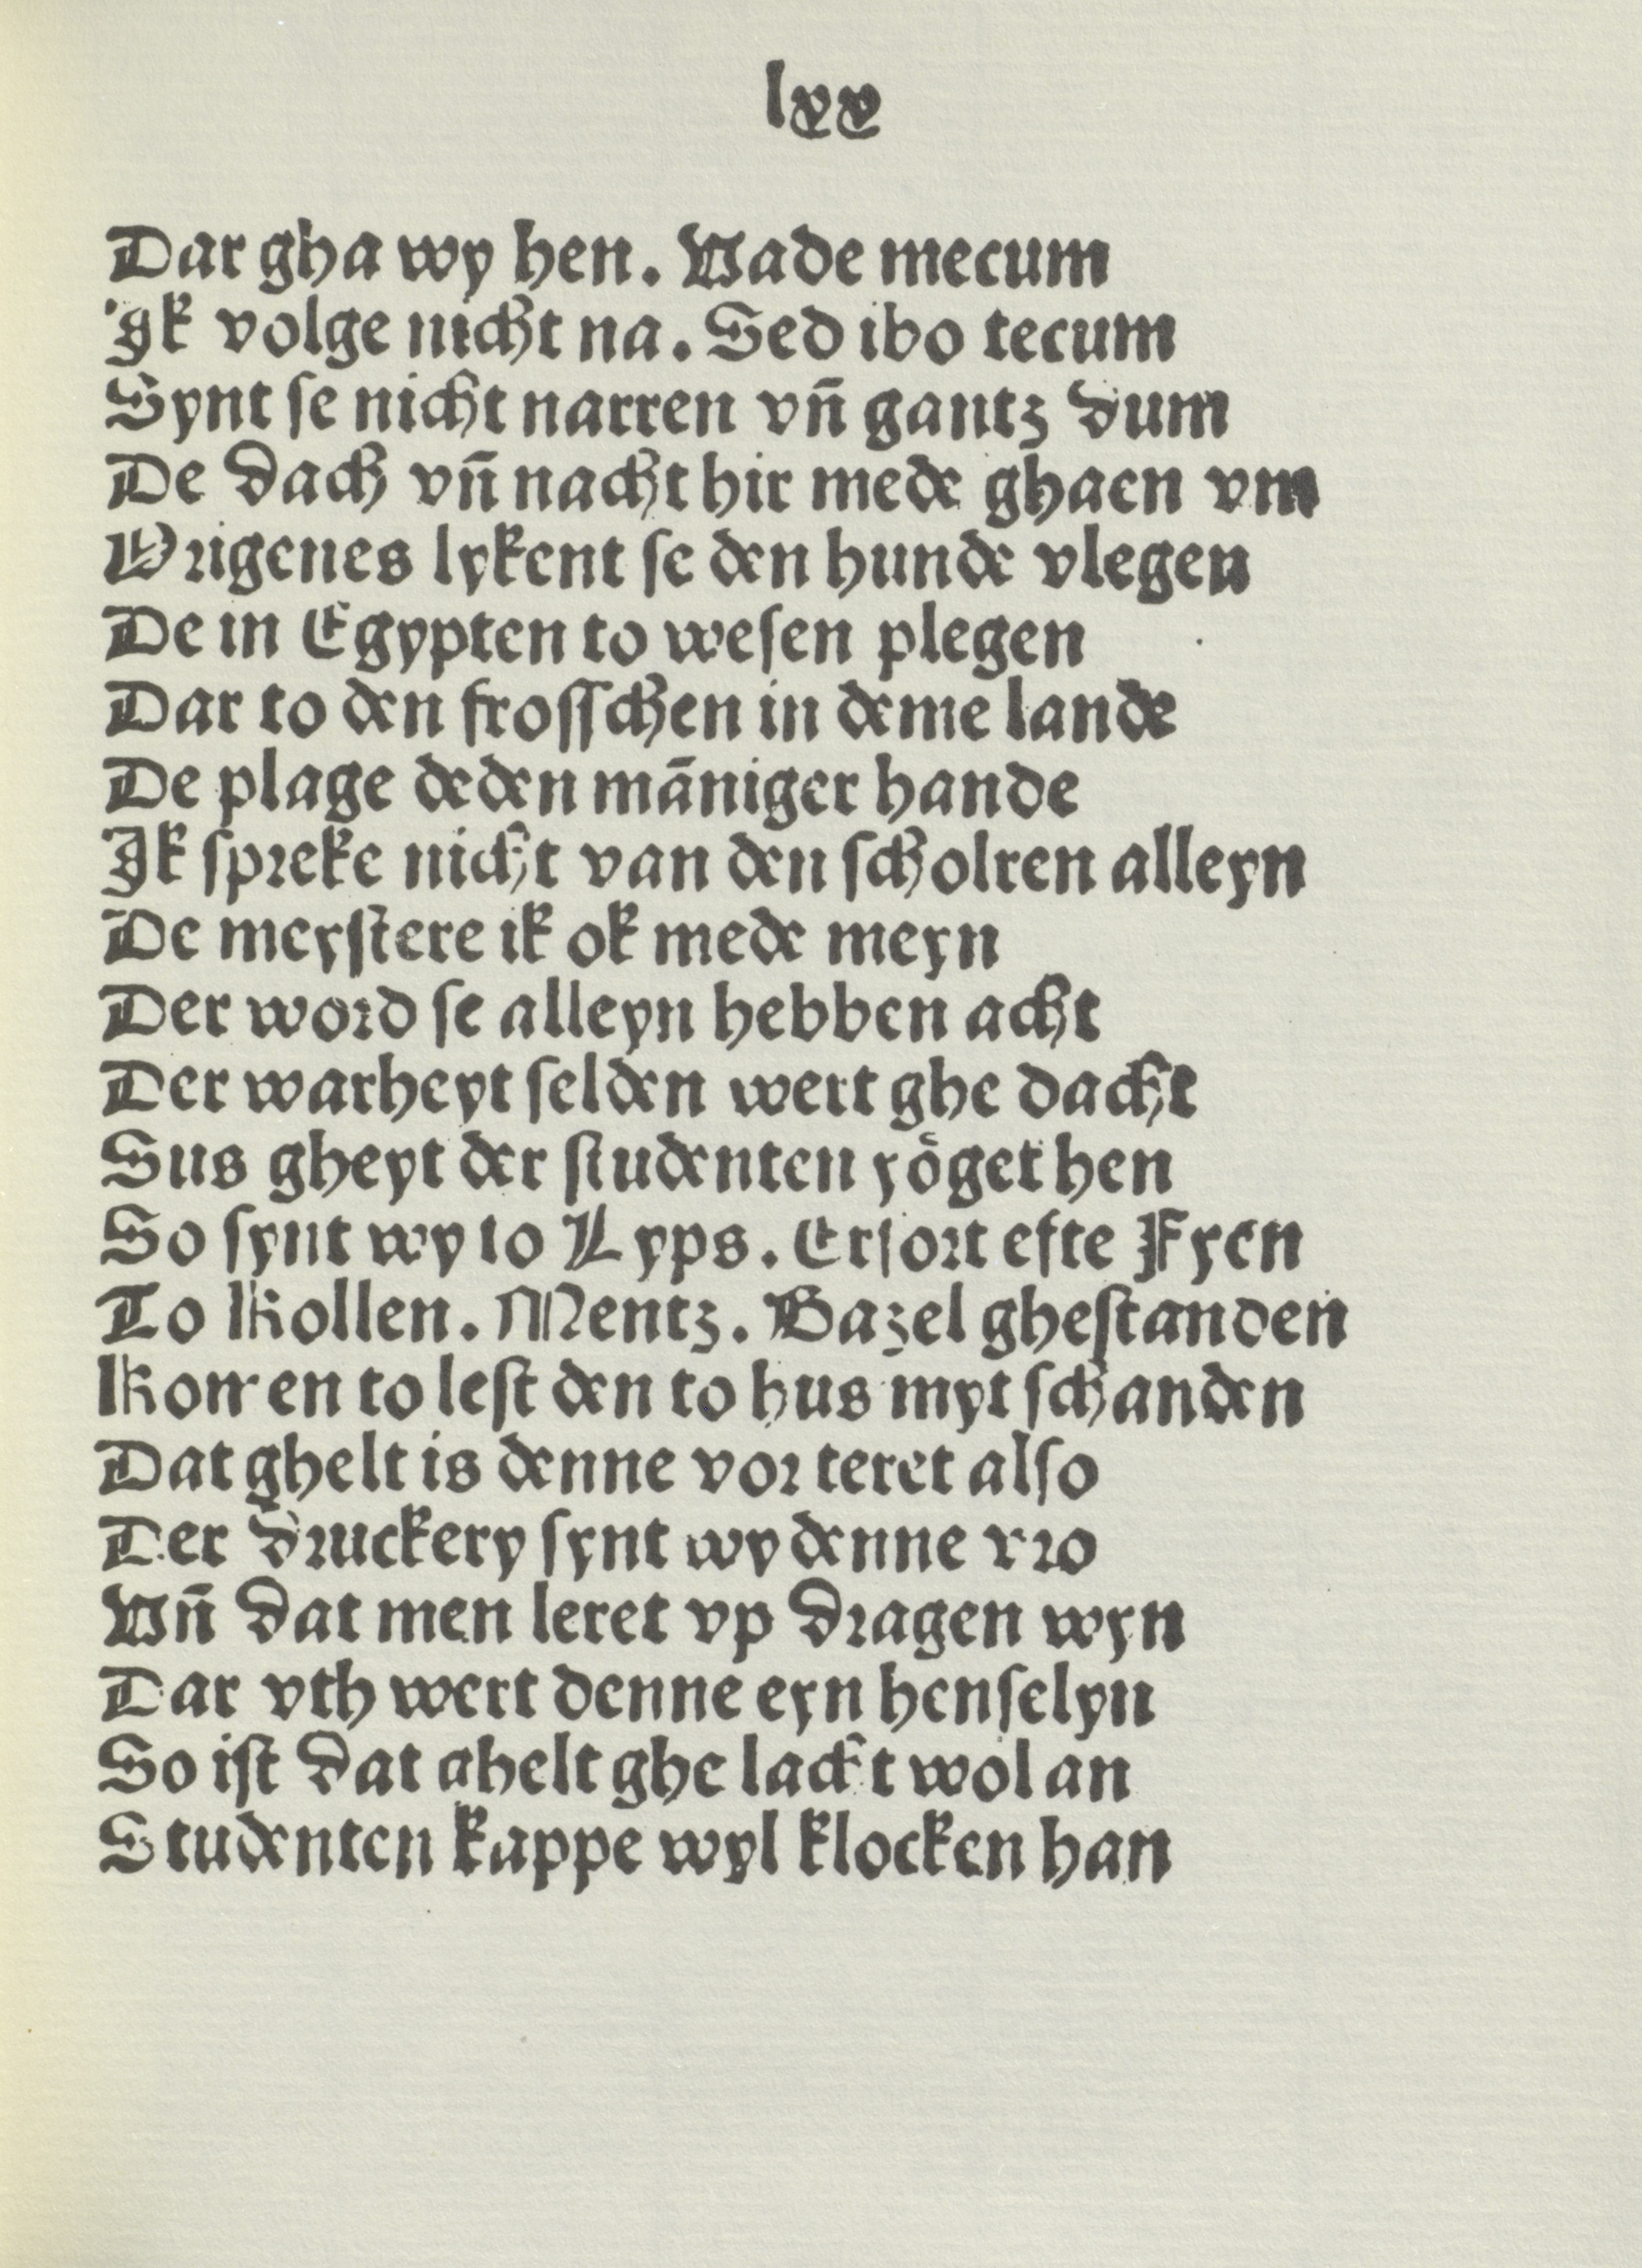 lxx
Dar gha wy hen. Vade mecum
Ik volge nicht na. Sed ibo tecum
Synt se nicht narren vn̄ gantz dum
De dach vn̄ nacht hir mede ghaen vm
Origenes lykent se den hunde vlegen
De in Egypten to wesen plegen
Dar to den frosschen in deme lande
De plage deden māniger hande
Ik spreke nicht van den scholren alleyn
De meystere ik ok mede meyn
Der word se alleyn hebben acht
Der warheyt selden wert ghe dacht
Sus gheyt der studenten yöget hen
So synt wy to Lyps. Ersort efte Fyen
To Kollen. Mentz. Bazel ghestanden
Komen to lest den to hus myt schanden
Dat ghelt is denne vor teret also
Der druckery synt wy denne vro
Vn̄ dat men leret vp dragen wyn
Dar vth wert denne eyn henselyn
So ist dat ghelt ghe lacht wol an
Studenten kappe wyl klocken han